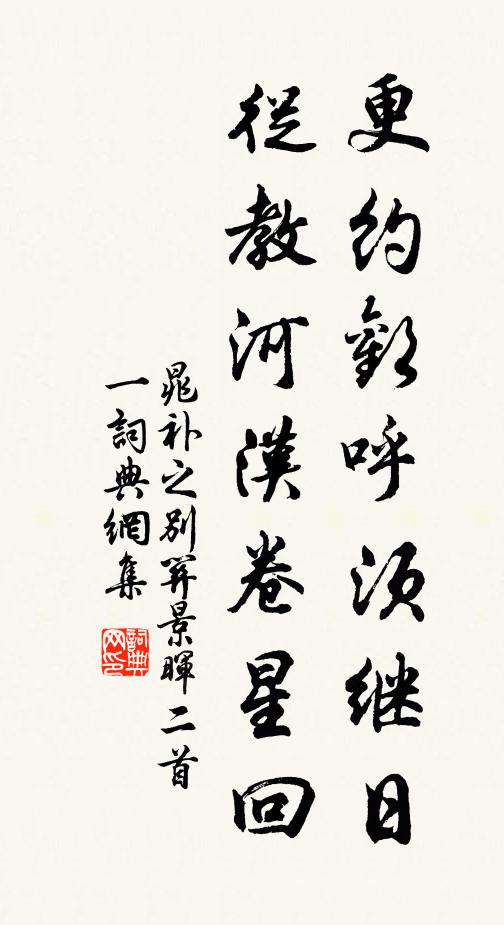 更約歡呼須继日
從教河漢卷星回
晁补之别景暉二首
一詞典網集
詞典网印